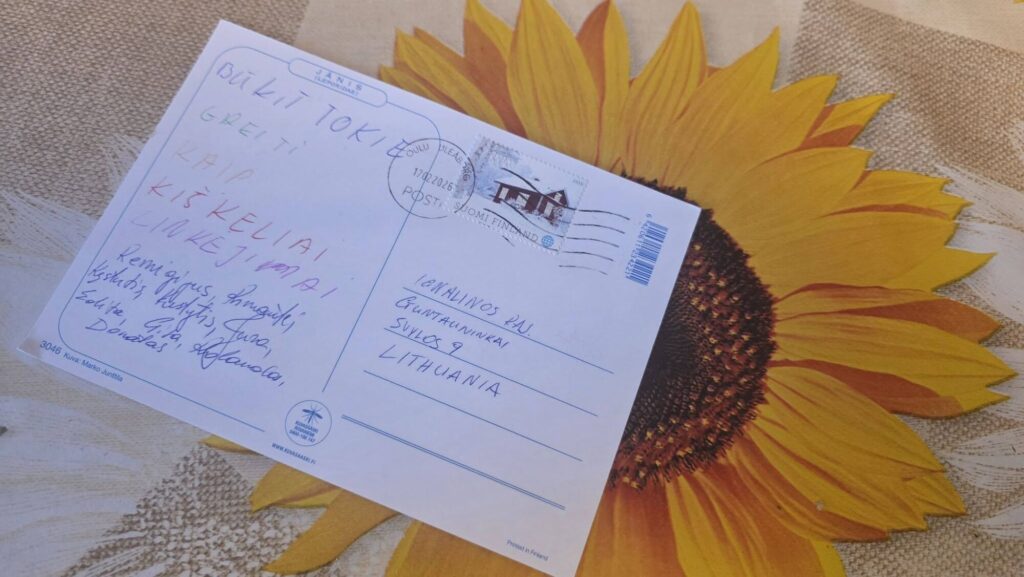 JÄNIS
(LEPORIDAE)
BŪKIT TOKIE
GREITI
KAIP
KIŠKELIAI
LINKĖJIMAI
Remigijus
Kęstutis, Kastytis, Jura,
Salita, Gita,
Donatas
3046 Kuva: Marko Junttila
OULU ULEÅBORG
17.02.2026
POSTI
SUOMI FINLAND
IGNALINOS RAJ
GUNTAUNINKAI
SVYLOS 9
LITHUANIA
WWW.KUVASAARI.FI
Printed in Finland